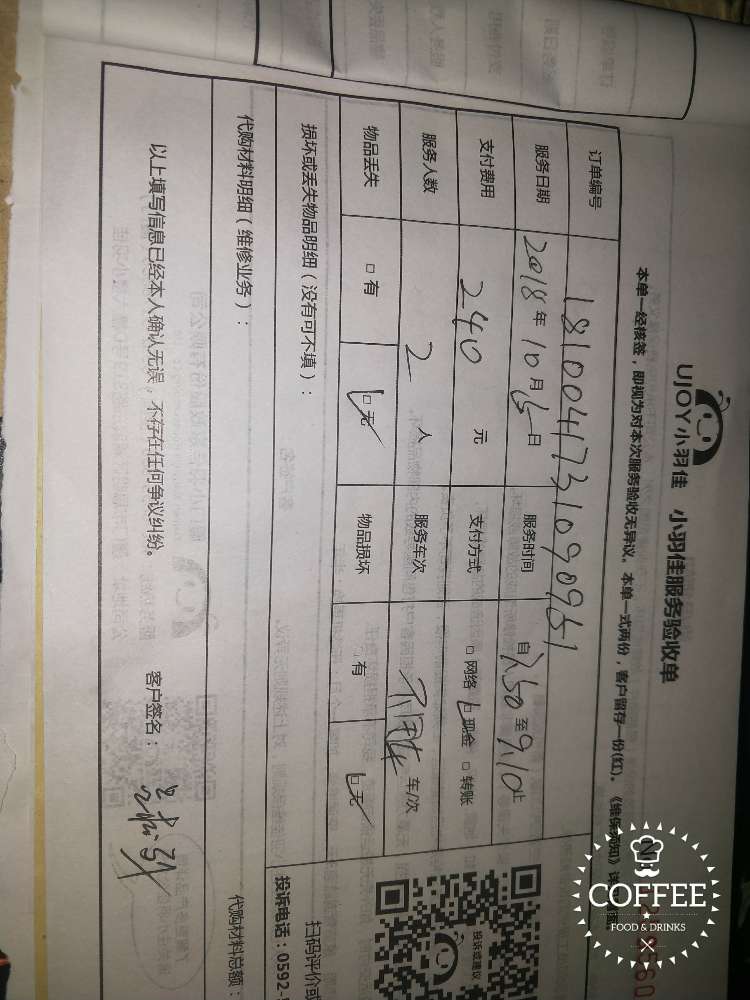 UJOY小羽佳 小羽佳服务验收单
本单一经核签，即视为对本次服务验收无异议。本单一式两份，客户留存一份(红)。《维保须知》详
订单编号 1810041731090951
服务日期 2018年10月15日 服务时间 自 至9.10止
支付费用 240 元 支付方式 □网络 □现金 □转账
服务人数 2 人 服务车次 不用车 车/次
物品丢失 □有 □无 物品损坏 □有 □无
损坏或丢失物品明细（没有可不填）：
代购材料明细（维修业务）： 代购材料总额：
以上填写信息已经本人确认无误，不存在任何争议纠纷。 客户签名：
投诉或建议
扫码评价或
投诉电话：0592-
COFFEE
FOOD & DRINKS